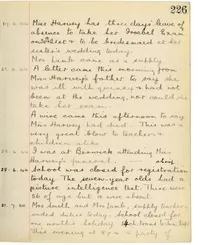 226
Miss Harvey has three days leave of
absence to take her School Exam
and to be bridesmaid at her
sister's wedding today.
Miss came as a supply.
A letter came this morning from
Miss Harvey's father to say she
was ill with & had not
been at the wedding, nor could she
take her exam.
A wire came this afternoon to say
Miss Harvey had died. This was a
very great blow to teachers &
children alike.
I was at Berwick attending Miss
Harvey's funeral.
School was closed for registration
today. The seven year olds had a
picture intelligence test. There were
36 of age but 2 were absent.
Miss Smith and Miss Lamb, supply teachers
ended duties today. School closed for
one month's holiday
this evening at